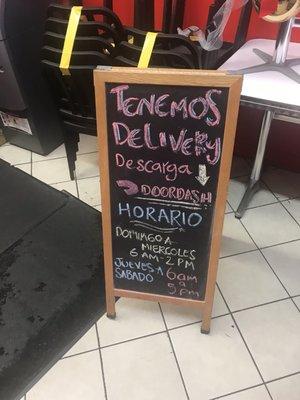 TENEMOS
DELIVERY
Descarga
DOORDASH
HORARIO
DOMINGO A
MIERCOLES
6 AM-2 PM
JUEVES-A 6am
SABADO a
5 pm